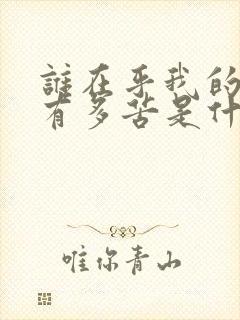 誰在乎我的
有多苦是什
唯你青山